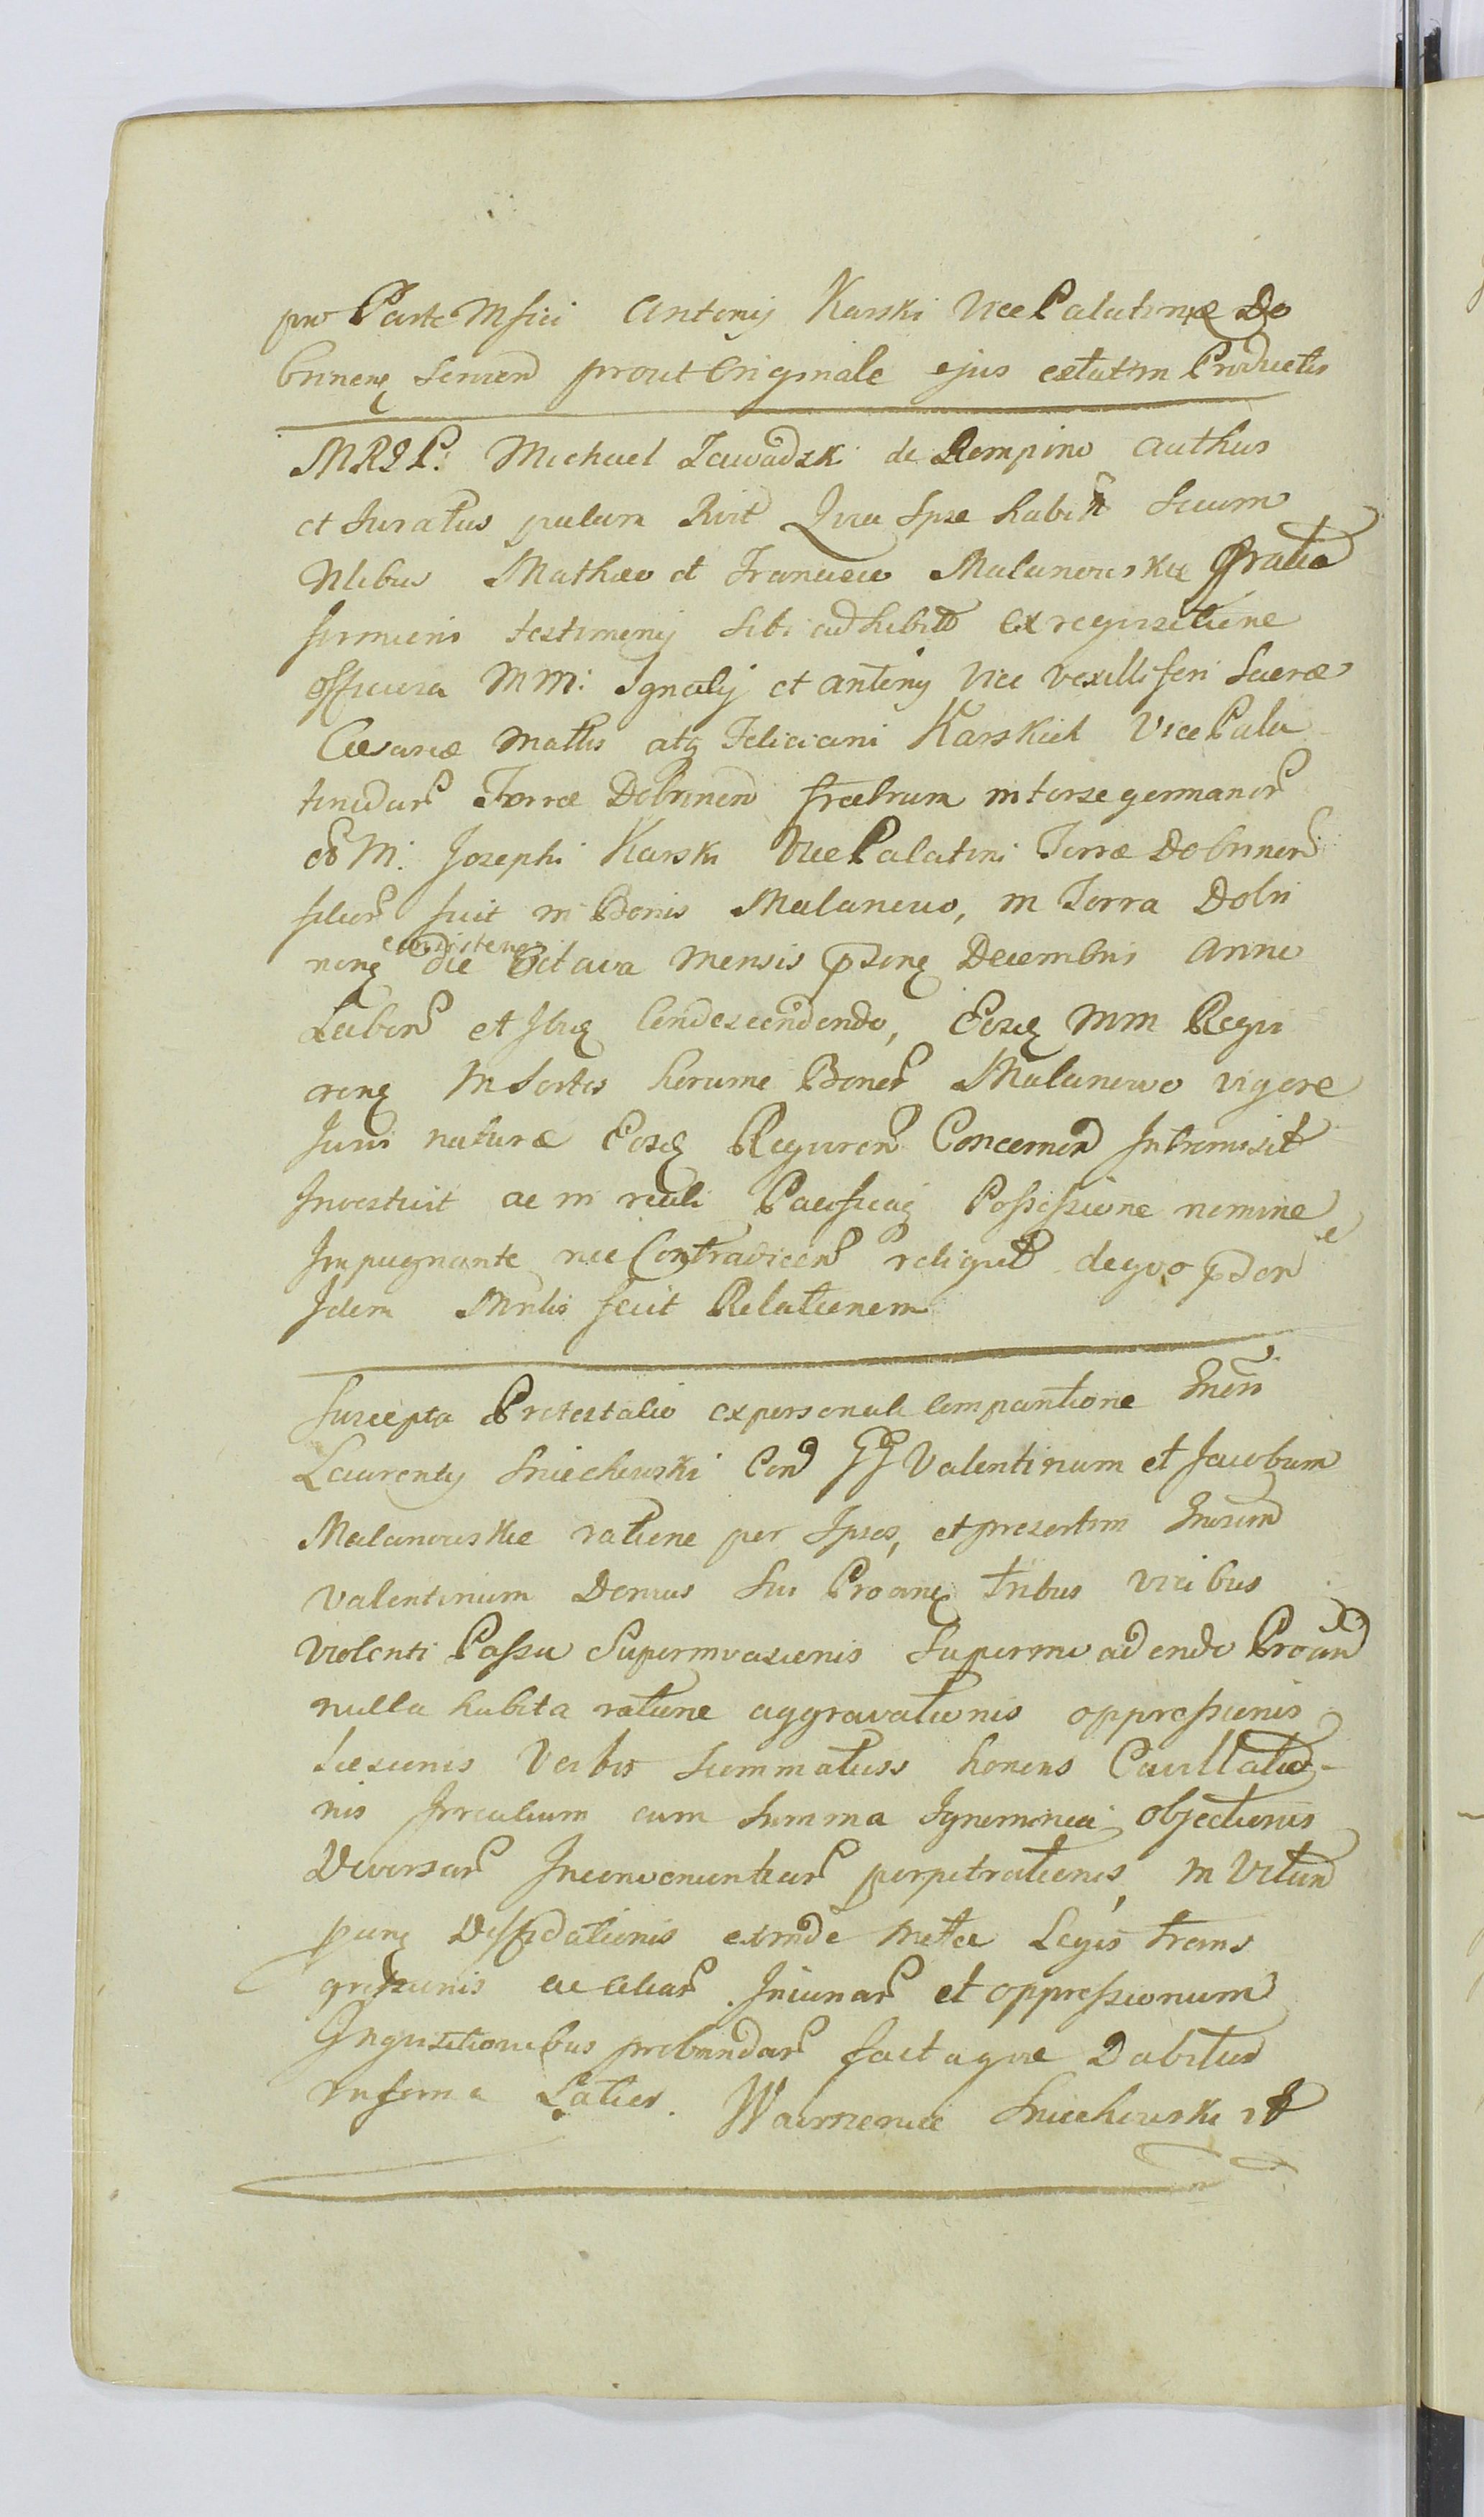 pro Parte Mfici Antonij Karski Vice Palatinæ Do
brinenę Servien prout Originale ejus extatim Productis
MRGP. Michael Zawadzki de Rempino authus
et Juratus palam Rvit Quia Ipse habitt Secum
Nlibus Mathæo et Francisco Malanowskie Gratia
firmioris testimonij sibi adhibit ex reqvisitione
officiosa MM: Ignatij et Antonij Vice Vexilliferi Sacræ
Cæsariæ Mattis atq Feliciani Karskich Vice Pala
tinidar Terræ Dobrinen fratrum interse germanor
M: Josephi Karski Vice Palatini Terræ Dobrinen
filior fuit in Bonis Malanowo, in Terra Dobri
nenę existenę die Octava Mensis pdsenę Decembris Anno
Laben et Ibię Condescendendo, Eosdę MM Reqvi
renę in Sortes horume Bonor Malanowo vigore
Juris naturæ Eosdę Reqviren Concernen Intromisit
Investivit ac in reali Pacificaq Possessione nemine
Impugnante nec Contradicen reliqvit deqvo pdon
Idem Mnlis fecit Relationem
Suscepta Protestatio expersonali Comparitione Gnēri
Laurentij Sniechowski Con GG Valentinum et Jacobum
Malanowskie ratione per Ipsos, et presertim Gnosum
Valentinum Domus Sui Proanę tribus vicibus
Violenti Passu Superinvasionis Superinvadendo Proan
nulla habita ratione aggravationis oppressionis
Læsionis Verbis Summatiss honoris Cavillatio-
nis Irrealium cum Summa Ignominia objectionis
Diversar Inconvenientiar perpetrationis, in Vitam
punę Diffidationis exinde metæ Legis trans
gressionis ac aliar Iniuriar et oppressionum
Inqvisitionibus probandar factaqve Dabitur
inferma Latius. Wawrzeniec Sniechowski